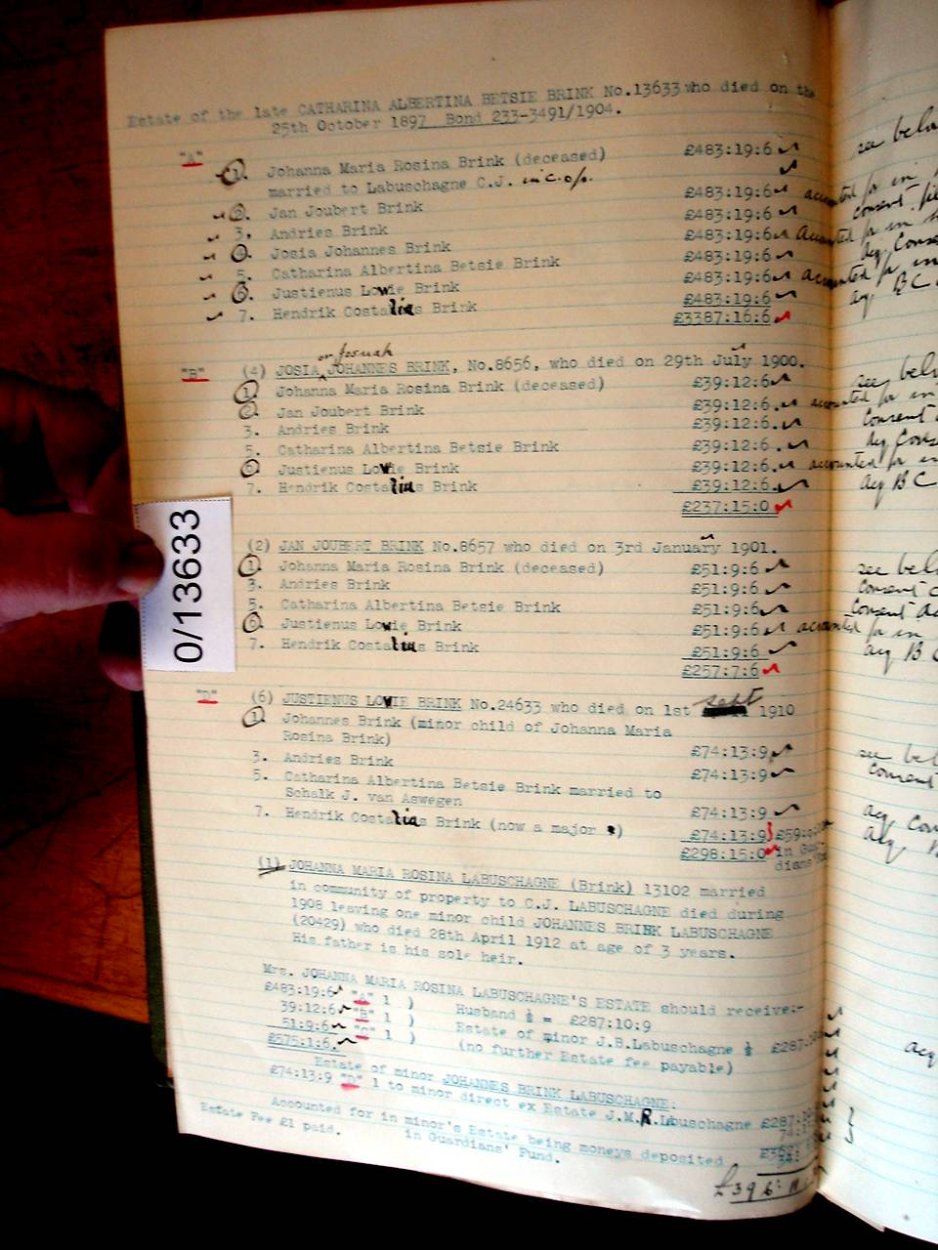 Estate of the late CATHARINA ALBERTINA BETSIE BRINK No.13633 who died on the
25th October 1897 Bond 233-3491/1904.
"A"
1. Johanna Maria Rosina Brink (deceased) £483:19:6
married to Labuschagne C.J. in c.o.p.
2. Jan Joubert Brink £483:19:6
3. Andries Brink £483:19:6
4. Josia Johannes Brink £483:19:6
5. Catharina Albertina Betsie Brink £483:19:6
6. Justienus Lowie Brink £483:19:6
7. Hendrik Costalias Brink £483:19:6
£3387:16:6
or Josuah
"B" (4) JOSIA JOHANNES BRINK, No.8656, who died on 29th July 1900.
1. Johanna Maria Rosina Brink (deceased) £39:12:6
2. Jan Joubert Brink £39:12:6.
3. Andries Brink £39:12:6
5. Catharina Albertina Betsie Brink £39:12:6.
6. Justienus Lowie Brink £39:12:6.
7. Hendrik Costalias Brink £39:12:6.
£237:15:0
0/13633
(2) JAN JOUBERT BRINK No.8657 who died on 3rd January 1901.
1. Johanna Maria Rosina Brink (deceased) £51:9:6
3. Andries Brink £51:9:6
5. Catharina Albertina Betsie Brink £51:9:6
6. Justienus Lowie Brink £51:9:6
7. Hendrik Costalias Brink £51:9:6
£257:7:6
"D" (6) JUSTIENUS LOWIE BRINK No.24633 who died on 1st Sept 1910
1. Johannes Brink (minor child of Johanna Maria
Rosina Brink) £74:13:9
3. Andries Brink £74:13:9
5. Catharina Albertina Betsie Brink married to
Schalk J. van Aswegen £74:13:9
7. Hendrik Costalias Brink (now a major) £74:13:9
£298:15:0 in
(1) JOHANNA MARIA ROSINA LABUSCHAGNE (Brink) 13102 married
in community of property to C.J. LABUSCHAGNE died during
1908 leaving one minor child JOHANNES BRINK LABUSCHAGNE
(20429) who died 28th April 1912 at age of 3 years.
His father is his sole heir.
Mrs. JOHANNA MARIA ROSINA LABUSCHAGNE'S ESTATE should receive:-
£483:19:6 "A" 1 ) Husband ½ = £287:10:9
39:12:6 "B" 1 ) Estate of minor J.B.Labuschagne ½ £287:
51:9:6 "C" 1 ) (no further Estate fee payable)
£575:1:6.
Estate of minor JOHANNES BRINK LABUSCHAGNE:
£74:13:9 "D" 1 to minor direct ex Estate J.M.R.Lbuschagne £287:
Accounted for in minor's Estate being moneys deposited
Estate Fee £1 paid. in Guardians' Fund.
£396: